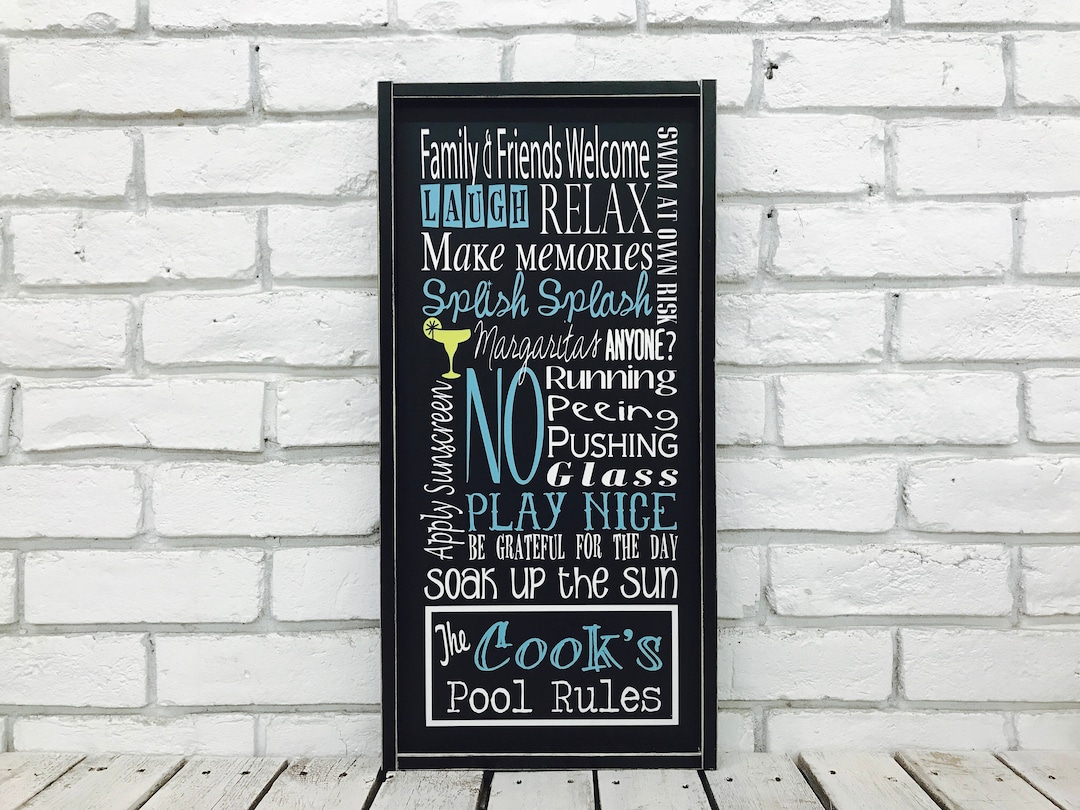 Family & Friends Welcome
LAUGH RELAX
Make memories
Splish Splash
SWIM AT OWN RISK
Margaritas ANYONE?
Apply Sunscreen
NO
Running
Peeing
Pushing
Glass
PLAY NICE
BE GRATEFUL FOR THE DAY
Soak up the sun
The Cook's
Pool Rules